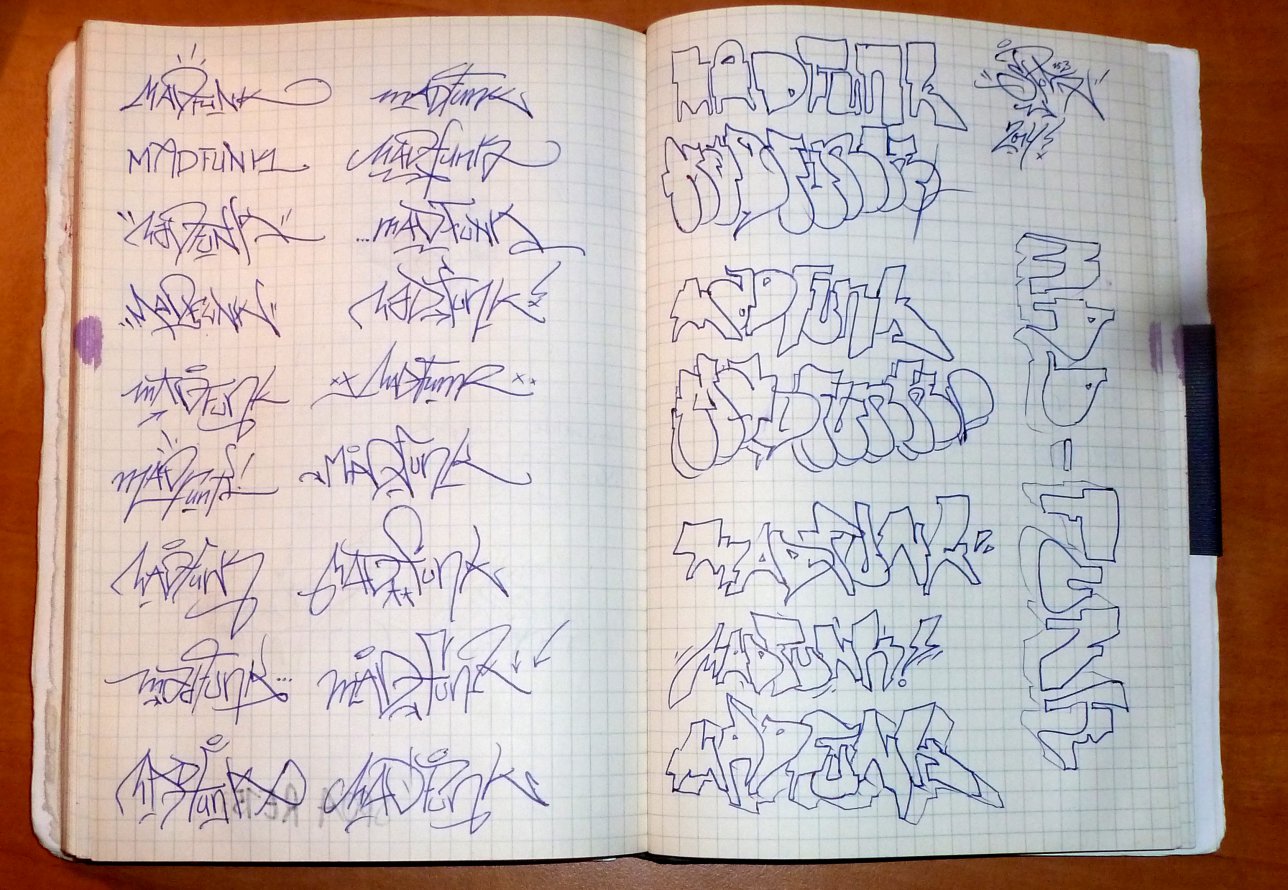 MADFUNK
MADFUNK
MADFUNK1
MADFUNK
MADFUNK
MADFUNK
MADFUNK
MADFUNK
MADFUNK
MADFUNK
MADFUNK
MADFUNK!
MADFUNK
MADFUNK
MADFUNK
MADFUNK
MADFUNK
MADFUNK
MADFUNK
MADFUNK
MADFUNK
MADFUNK
MADFUNK
MADFUNK
MADFUNK
MADFUNK
MADFUNK!
MADFUNK
2014
MAD-FUNK